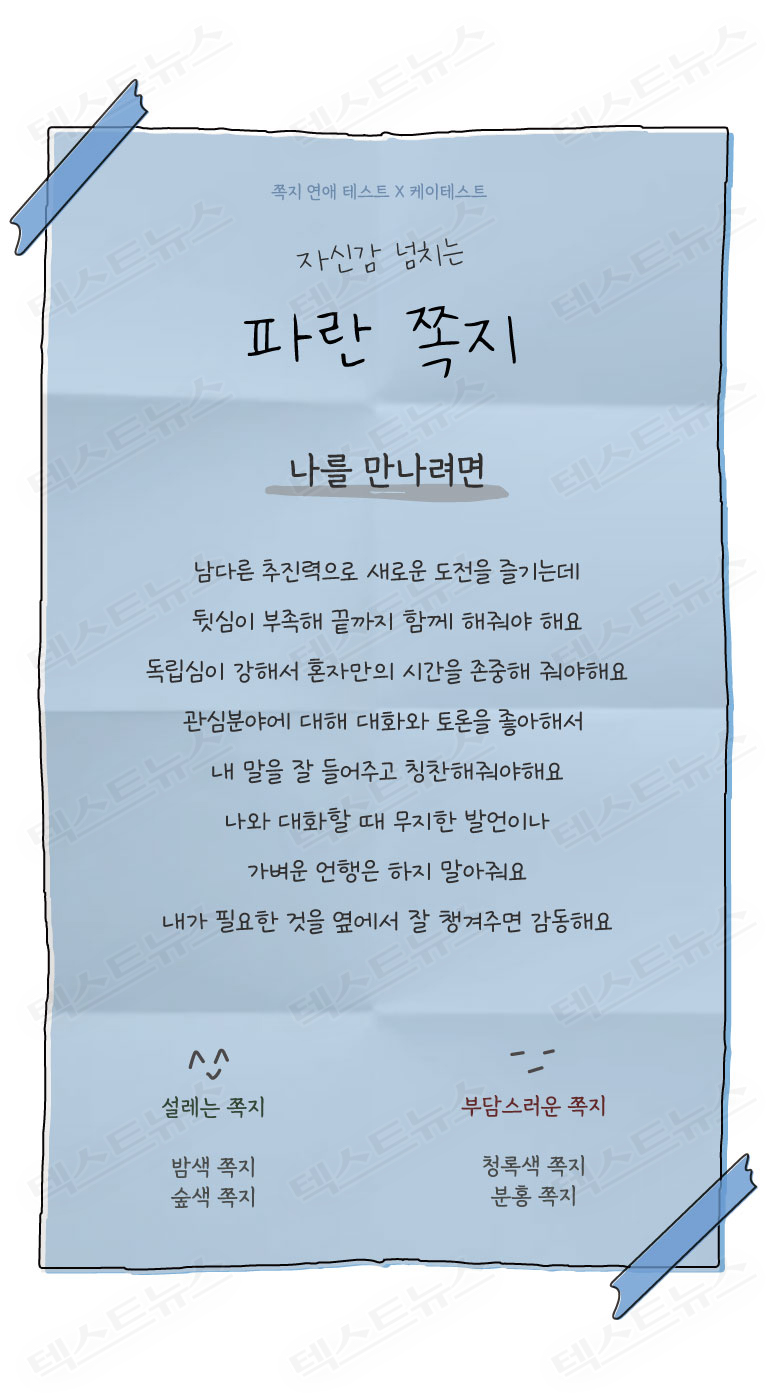 쪽지 연애 테스트 X 케이테스트
자신감 넘치는
파란 쪽지
나를 만나려면
남다른 추진력으로 새로운 도전을 즐기는데
뒷심이 부족해 끝까지 함께 해줘야 해요
독립심이 강해서 혼자만의 시간을 존중해 줘야해요
관심분야에 대해 대화와 토론을 좋아해서
내 말을 잘 들어주고 칭찬해줘야해요
나와 대화할 때 무지한 발언이나
가벼운 언행은 하지 말아줘요
내가 필요한 것을 옆에서 잘 챙겨주면 감동해요
설레는 쪽지
밤색 쪽지
숲색 쪽지
부담스러운 쪽지
청록색 쪽지
분홍 쪽지
텍스트뉴스